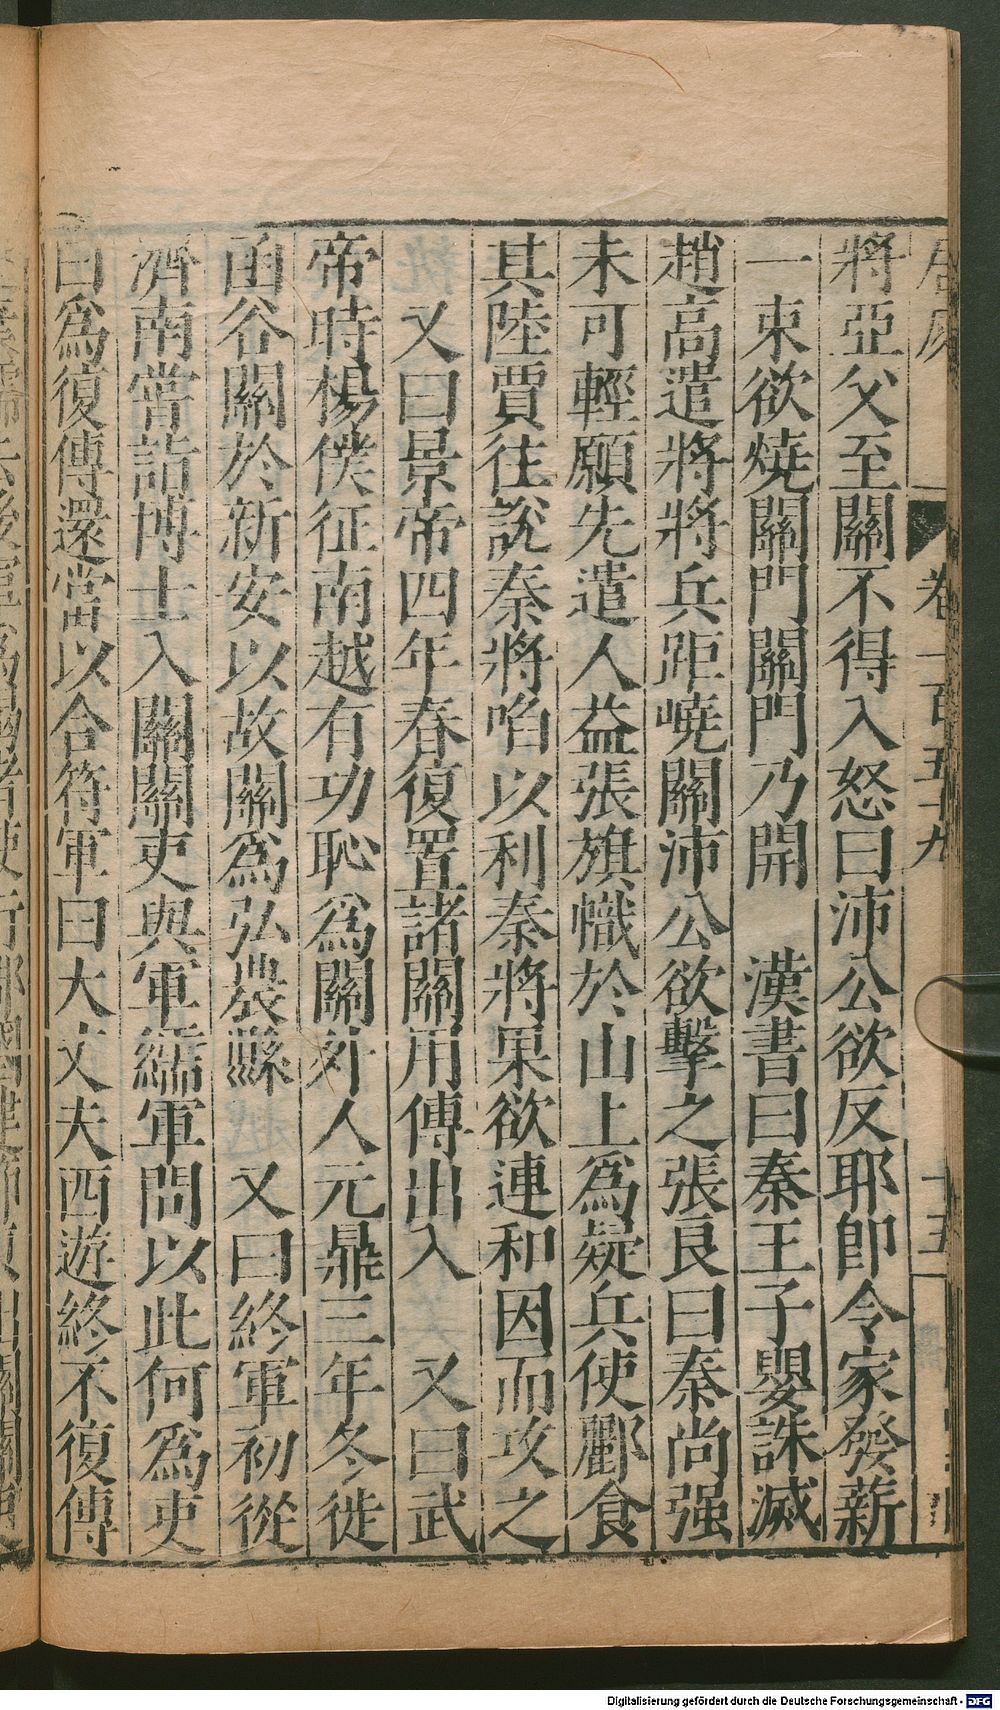 卷一百五十九
十五
將亞父至關不得入怒曰沛公欲反耶卽令家發薪
一束欲燒關門關門乃開　漢書曰秦王子嬰誅滅
趙高遣將將兵距嶢關沛公欲擊之張良曰秦尚强
未可輕願先遣人益張旗幟於山上爲疑兵使酈食
其陸賈往說秦將啗以利秦將果欲連和因而攻之
又曰景帝四年春復置諸關用傳出入　又曰武
帝時楊僕征南越有功恥爲關外人元鼎三年冬徙
函谷關於新安以故關爲弘農縣　又曰終軍初從
濟南嘗詣博士入關關吏與軍繻軍問以此何爲吏
曰爲復傳還當以合符軍曰大丈夫西遊終不復傳
Digitalisierung gefördert durch die Deutsche Forschungsgemeinschaft - DFG